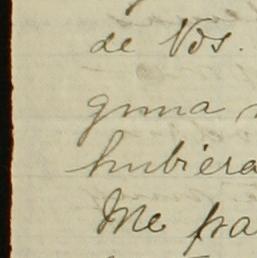 de Vos.
guna
hubiera
Me pa